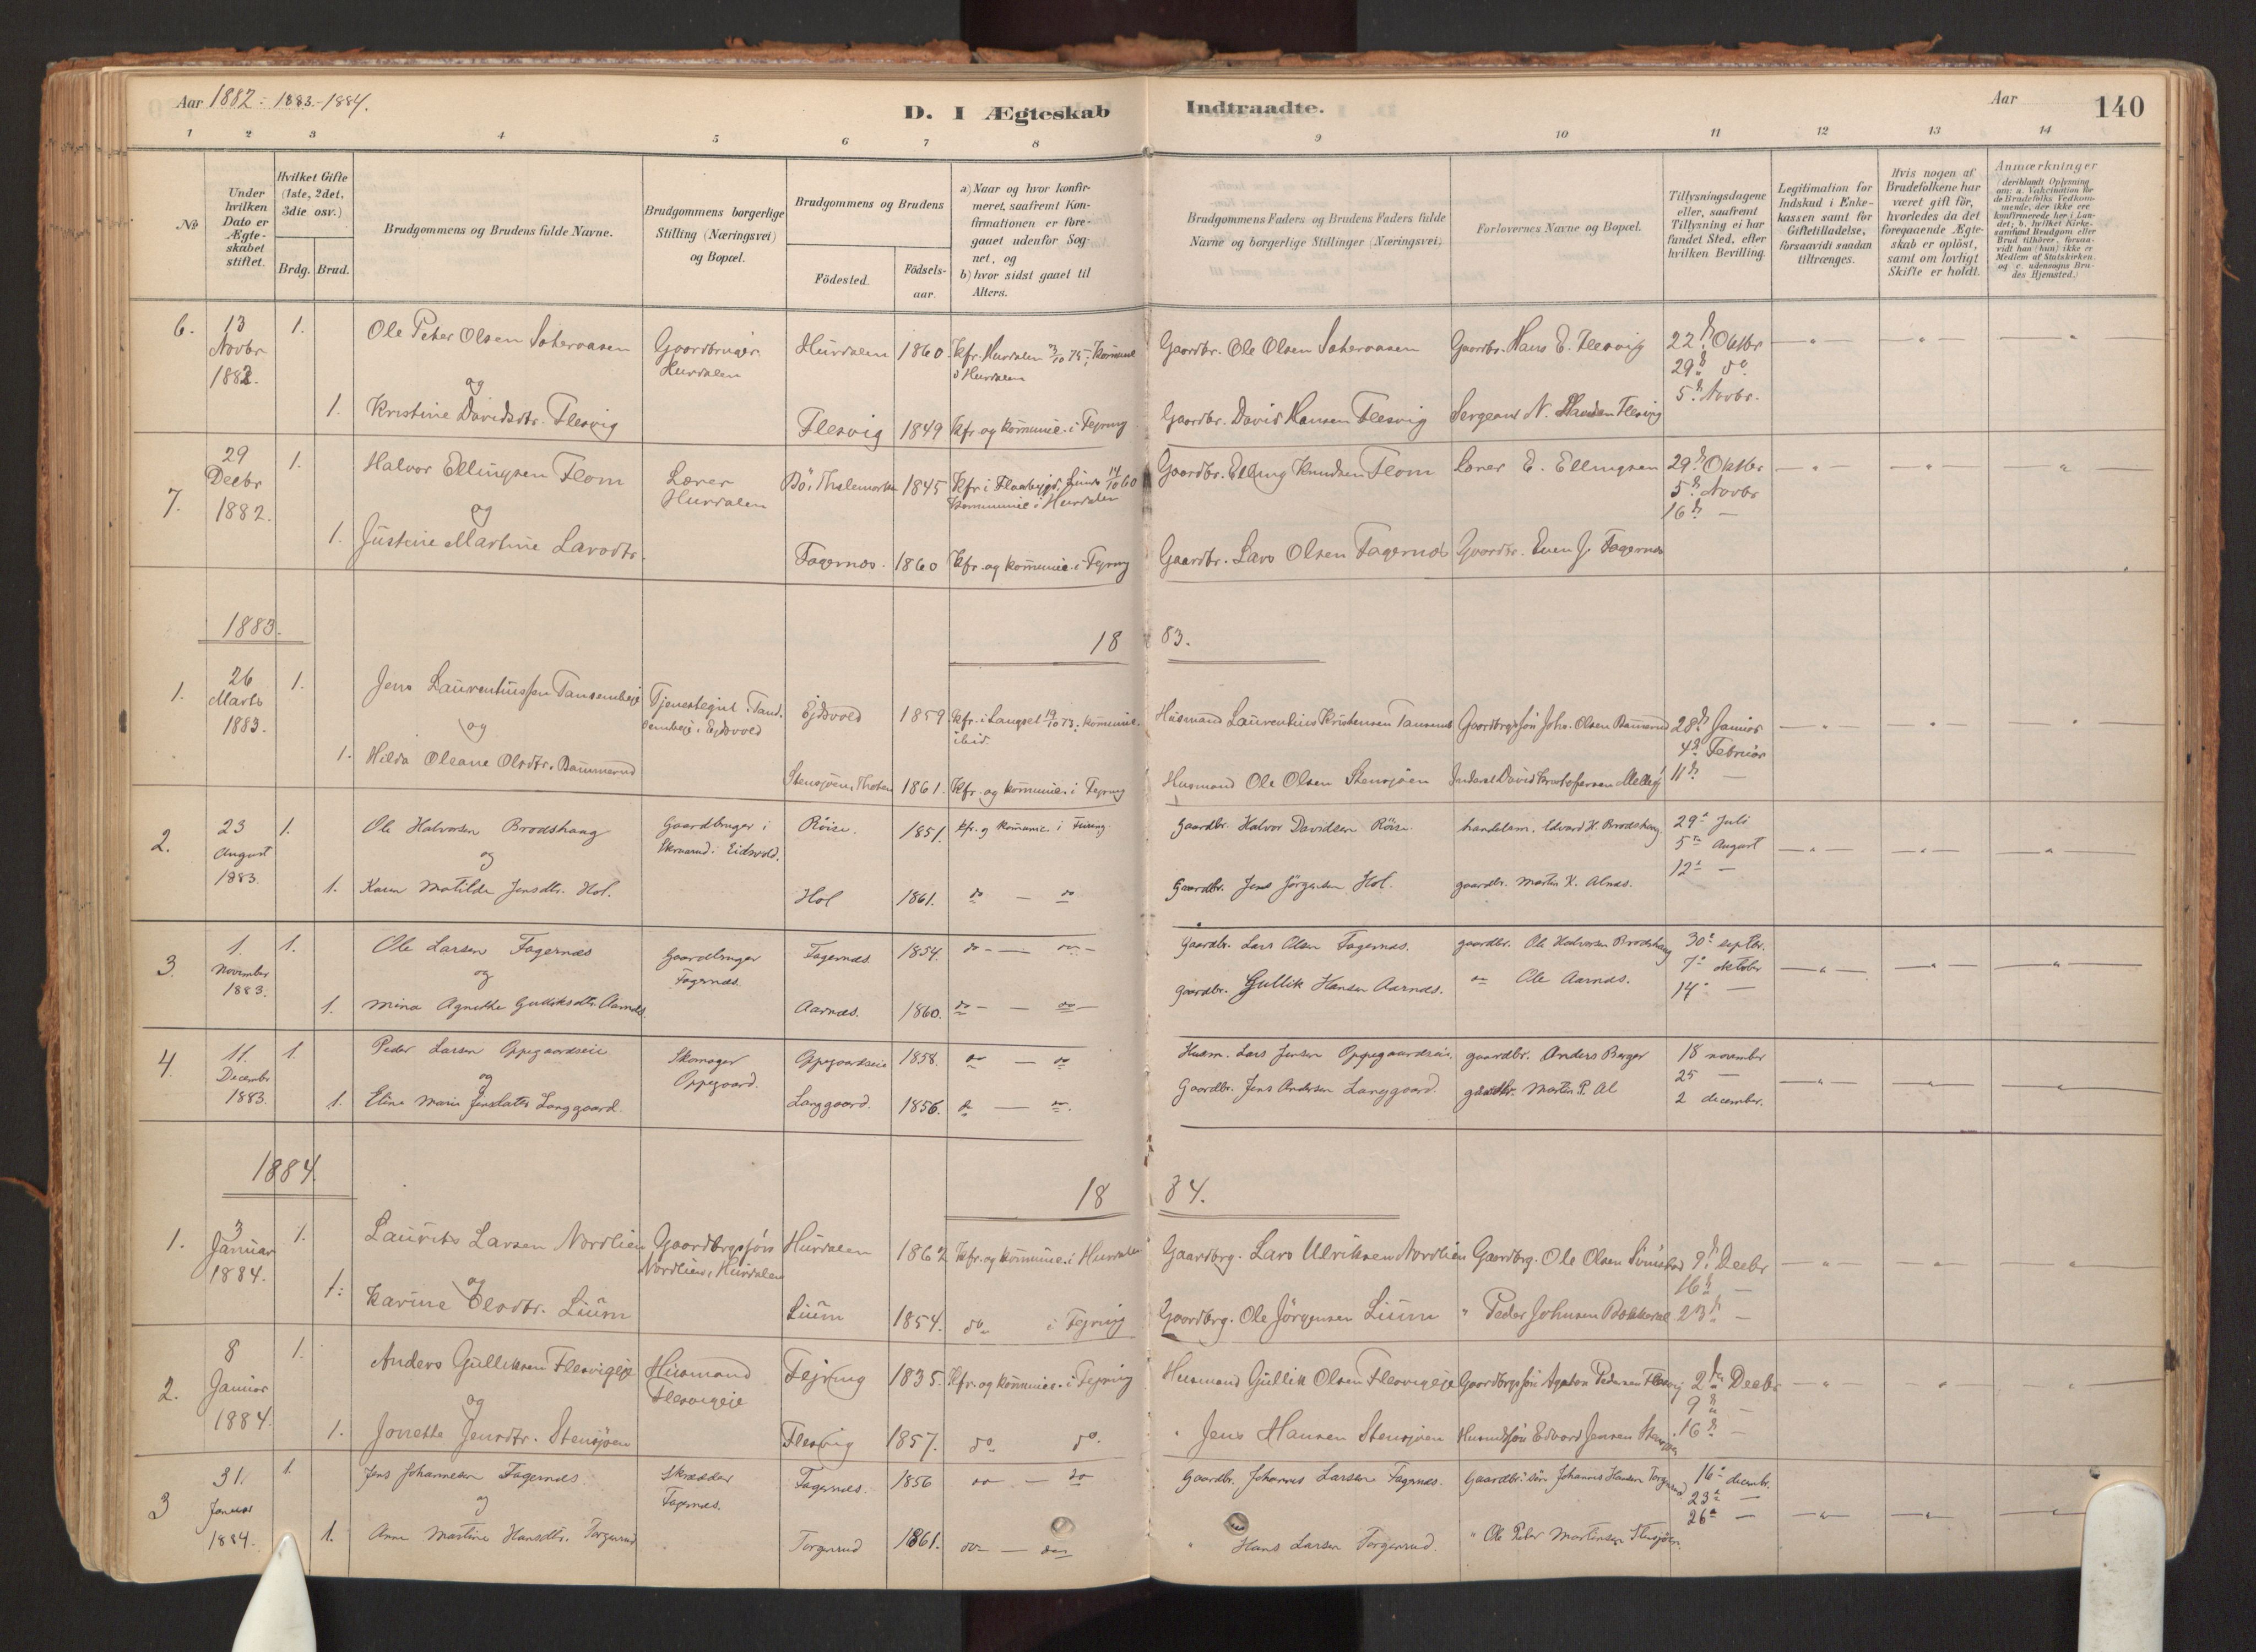 Aar 1882 - 1883 - 1884.
D. I Ægteskab Indtraadte.
Aar
140
1 2 3 4 5 6 7 8 9 10 11 12 13 14
No
Under hvilken Dato er Ægteskabet stiftet.
Hvilket Gifte (1ste, 2det, 3die osv.)
Brdg. Brud.
Brudgommens og Brudens fulde Navne.
Brudgommens borgerlige Stilling (Næringsvei) og Bopæl.
Brudgommens og Brudens
Födested.
Födselsaar.
a) Naar og hvor konfirmeret, saafremt Konfirmationen er foregaaet udenfor Sognet, og
b) hvor sidst gaaet til Alters.
Brudgommens Faders og Brudens Faders fulde Navne og borgerlige Stillinger (Næringsvei)
Forlovernes Navne og Bopæl.
Tillysningsdagene eller, saafremt Tillysning ei har fundet Sted, efter hvilken Bevilling.
Legitimation for Indskud i Enkekassen samt for Giftetilladelse, forsaavidt saadan tiltrænges.
Hvis nogen af Brudefolkene har været gift för, hvorledes da det foregaaende Ægteskab er oplöst, samt om lovligt Skifte er holdt.
Anmærkninger (deriblandt Oplysning om: a. Vakcination for de Brudefolks Vedkommende, der ikke ere konfirmerede her i Landet; b. hvilket Kirkesamfund Brudgom eller Brud tilhörer, forsaavidt han (hun) ikke er Medlem af Statskirken, og c. udensogns Brudes Hjemsted.)
6. 13 Novbr 1882. 1. Ole Peter Olsen Sæteraasen Gaardbruger Hurdalen Hurdalen 1860. Kfr. Hurdalen 3/10 75; kommunie i Hurdalen Gaardbr. Ole Olsen Sæteraasen Gaardbr. Hans E. Flesvig 22de Oktbr
og 29de do.
1. Kristine Davidsdtr. Flesvig Flesvig 1849 Kfr. og kommunic. i Fejring Gaardbr. David Hansen Flesvig Sergeant N. Flesvig 5te Novbr.
7. 29 Decbr 1882. 1. Halvor Ellingsen Flom Lærer Hurdalen Bö i Thelemarken 1845 Kfr i Flaabygd, Lunde 14/10 60 Kommunic i Hurdalen Gaardbr. Elling Knudsen Flom Lærer E. Ellingsen 29de Oktbr
og 5te Novbr
16de —
1. Justine Martine Larsdtr. Fagernæs. 1860 Kfr. og kommunic. i Fejring Gaardbr. Lars Olsen Fagernæs Gaardbr. Even J. Fagernæs
1883. 18 83.
1. 26 Marts 1883. 1. Jens Laurentiussen Tansembeje Tjenestegut Tandsembeje i Ejdsvold Ejdsvold 1859. Kfr. i Langset 19/10 73, kommunic. ibid. Husmand Laurentius Kristensen Gaardbrgssön Johs. Olsen 28de Januar
og 4de Februar
1. Hilda Oleane Olsdtr. Stensjöen, Thoten 1861. Kfr. og kommunic. i Fejring Husmand Ole Olsen Stensjöen David 11te —
2. 23 August 1883. 1. Ole Halvorsen Brodshaug Gaardbruger i Skraarud i Eidsvold. Röise. 1851. kfr. og komunic. i Feiring. Gaardbr. Halvor Davidsen Röise. handelsm. Edvard H. Brodshaug. 29de Juli
og 5te August
1. Karen Matilde Jensdtr. Hol. Hol 1861. do — do Gaardbr. Jens Jörgensen Hol. gaardbr. Martin K. Alnæs. 12te —
3. 1. November 1883. 1. Ole Larsen Fagernæs Gaardbruger Fagernæs. Fagernæs. 1854. do — do Gaardbr. Lars Olsen Fagernæs. gaardbr. Ole Halvorsen Brodshaug 30te septbr.
og 7de oktober
1. Mina Agnethe Gulliksdtr. Aarnæs. Aarnæs. 1860. do — do Gaardbr. Gullik Hansen Aarnæs. do Ole Aarnæs. 14de —
4. 11. December 1883. 1. Peder Larsen Oppegaardseie Skomager Oppegaard. Oppegaardseie 1858. do — do Husm. Lars Jensen Oppegaardseie. gaardbr. Anders Berger 18 november
og 25 —
1. Eline Marie Jensdatter Langgaard. Langgaard. 1856. do — do Gaardbr. Jens Andersen Langgaard. gaardbr. Martin P. Al 2 december.
1884. 18 84.
1. 3 Januar 1884. 1. Laurits Larsen Nordlien Gaardbrgssön Nordlien, Hurdalen Hurdalen 1862 Kfr. og kommunic. i Hurdalen Gaardbrg. Lars Ulriksen Nordlien Gaardbrg. Ole Olsen 9de Decbr
og 16de —
1. Karine Olsdtr. Lium Lium 1854. do i Fejring Gaardbrg. Ole Jörgensen Lium " Peder Johnsen 23de —
2. 8 Januar 1884. 1. Anders Gulliksen Flesvigeje Husmand Flesvigeje Fejring 1835. Kfr. og kommunic. i Fejring Husmand Gullik Olsen Flesvigeje Gaardbrgssön Agaton Pedersen Flesvig 2den Decbr
og 9de —
1. Jonette Jensdtr. Stensjöen Flesvig 1857. do do. " Jens Hansen Stensjöen Husmdssön Edvard Jensen Stensjöen 16de —
3 31. Januar 1884. 1. Jens Johannesen Fagernæs. Skrædder Fagernæs. Fagernæs. 1856 do — do Gaardbr. Johannes Larsen Fagernæs. Gaardbr. sön Johannes Hansen Torgerud 16de decembr.
og 23de —
1. Anne Martine Hansdtr. Torgerud Torgerud 1861. do — do " Hans Larsen Torgerud. " Ole Peter Martinsen Stensjöen. 26de —